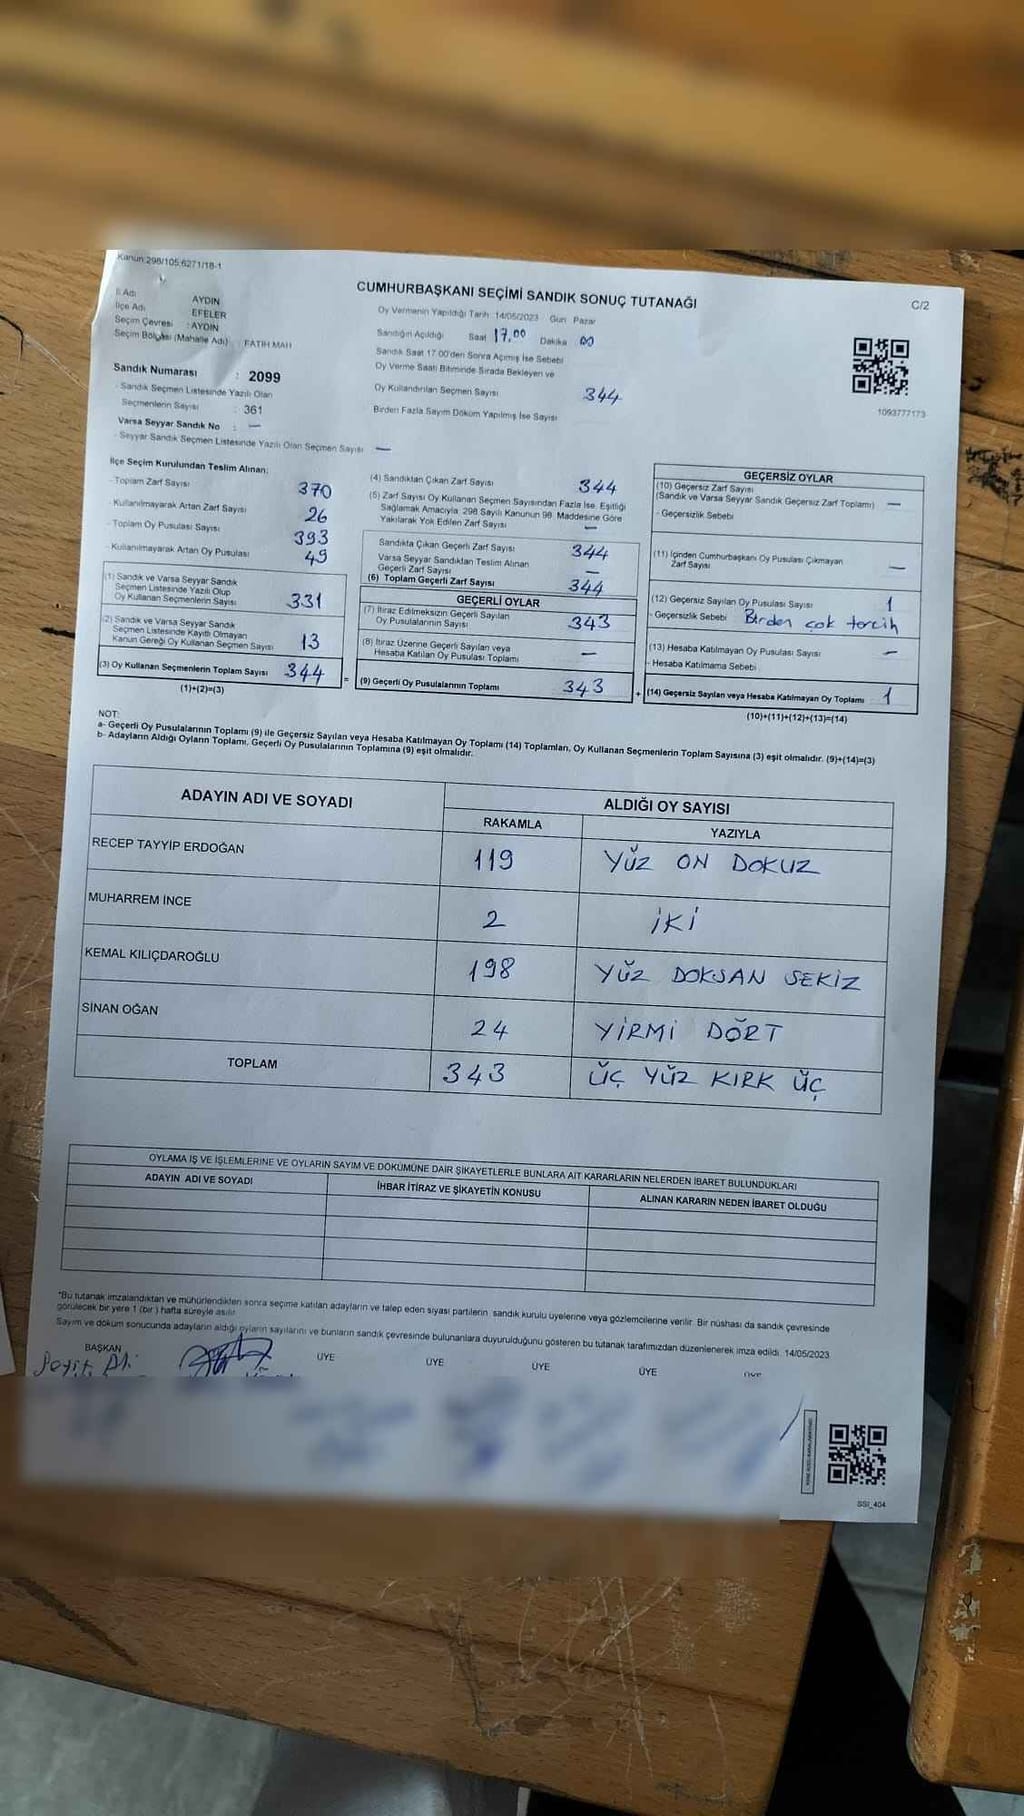 Kanun:298/105;6271/18-1
CUMHURBAŞKANI SEÇİMİ SANDIK SONUÇ TUTANAĞI
C/2
İl Adı AYDIN
İlçe Adı EFELER
Seçim Çevresi : AYDIN
Seçim Bölgesi (Mahalle Adı) : FATİH MAH
Oy Vermenin Yapıldığı Tarih: 14/05/2023 Gün Pazar
Sandığın Açıldığı Saat 17.00 Dakika 00
Sandık Saat 17.00'den Sonra Açmış İse Sebebi
Oy Verme Saati Bitiminde Sırada Bekleyen ve
Oy Kullandırılan Seçmen Sayısı 344
Birden Fazla Sayım Döküm Yapılmış İse Sayısı
1093777173
Sandık Numarası : 2099
- Sandık Seçmen Listesinde Yazılı Olan
Seçmenlerin Sayısı : 361
Varsa Seyyar Sandık No : —
- Seyyar Sandık Seçmen Listesinde Yazılı Olan Seçmen Sayısı —
İlçe Seçim Kurulundan Teslim Alınan;
- Toplam Zarf Sayısı 370
- Kullanılmayarak Artan Zarf Sayısı 26
- Toplam Oy Pusulası Sayısı 393
- Kullanılmayarak Artan Oy Pusulası 49
(1) Sandık ve Varsa Seyyar Sandık
Seçmen Listesinde Yazılı Olup
Oy Kullanan Seçmenlerin Sayısı 331
(2) Sandık ve Varsa Seyyar Sandık
Seçmen Listesinde Kayıtlı Olmayan
Kanun Gereği Oy Kullanan Seçmen Sayısı 13
(3) Oy Kullanan Seçmenlerin Toplam Sayısı 344 =
(1)+(2)=(3)
(4) Sandıktan Çıkan Zarf Sayısı 344
(5) Zarf Sayısı Oy Kullanan Seçmen Sayısından Fazla İse, Eşitliği
Sağlamak Amacıyla 298 Sayılı Kanunun 98. Maddesine Göre
Yakılarak Yok Edilen Zarf Sayısı —
Sandıkta Çıkan Geçerli Zarf Sayısı 344
Varsa Seyyar Sandıktan Teslim Alınan
Geçerli Zarf Sayısı —
(6) Toplam Geçerli Zarf Sayısı 344
GEÇERLİ OYLAR
(7) İtiraz Edilmeksizin Geçerli Sayılan
Oy Pusulalarının Sayısı 343
(8) İtiraz Üzerine Geçerli Sayılan veya
Hesaba Katılan Oy Pusulası Toplamı —
(9) Geçerli Oy Pusulalarının Toplamı 343 +
GEÇERSİZ OYLAR
(10) Geçersiz Zarf Sayısı
(Sandık ve Varsa Seyyar Sandık Geçersiz Zarf Toplamı) —
- Geçersizlik Sebebi
(11) İçinden Cumhurbaşkanı Oy Pusulası Çıkmayan
Zarf Sayısı —
(12) Geçersiz Sayılan Oy Pusulası Sayısı 1
- Geçersizlik Sebebi Birden çok tercih
(13) Hesaba Katılmayan Oy Pusulası Sayısı —
- Hesaba Katılmama Sebebi
(14) Geçersiz Sayılan veya Hesaba Katılmayan Oy Toplamı 1
(10)+(11)+(12)+(13)=(14)
NOT:
a- Geçerli Oy Pusulalarının Toplamı (9) ile Geçersiz Sayılan veya Hesaba Katılmayan Oy Toplamı (14) Toplamları, Oy Kullanan Seçmenlerin Toplam Sayısına (3) eşit olmalıdır. (9)+(14)=(3)
b- Adayların Aldığı Oyların Toplamı, Geçerli Oy Pusulalarının Toplamına (9) eşit olmalıdır.
ADAYIN ADI VE SOYADI ALDIĞI OY SAYISI
RAKAMLA YAZIYLA
RECEP TAYYİP ERDOĞAN 119 YÜZ ON DOKUZ
MUHARREM İNCE 2 İKİ
KEMAL KILIÇDAROĞLU 198 YÜZ DOKSAN SEKİZ
SİNAN OĞAN 24 YİRMİ DÖRT
TOPLAM 343 ÜÇ YÜZ KIRK ÜÇ
OYLAMA İŞ VE İŞLEMLERİNE VE OYLARIN SAYIM VE DÖKÜMÜNE DAİR ŞİKAYETLERLE BUNLARA AİT KARARLARIN NELERDEN İBARET BULUNDUKLARI
ADAYIN ADI VE SOYADI İHBAR İTİRAZ VE ŞİKAYETİN KONUSU ALINAN KARARIN NEDEN İBARET OLDUĞU
*Bu tutanak imzalandıktan ve mühürlendikten sonra seçime katılan adayların ve talep eden siyasi partilerin sandık kurulu üyelerine veya gözlemcilerine verilir. Bir nüshası da sandık çevresinde
görülecek bir yere 1 (bir) hafta süreyle asılır.
Sayım ve döküm sonucunda adayların aldığı oyların sayılarını ve bunların sandık çevresinde bulunanlara duyurulduğunu gösteren bu tutanak tarafımızdan düzenlenerek imza edildi. 14/05/2023
BAŞKAN ÜYE ÜYE ÜYE ÜYE ÜYE
Seyit Ali
SSI_404